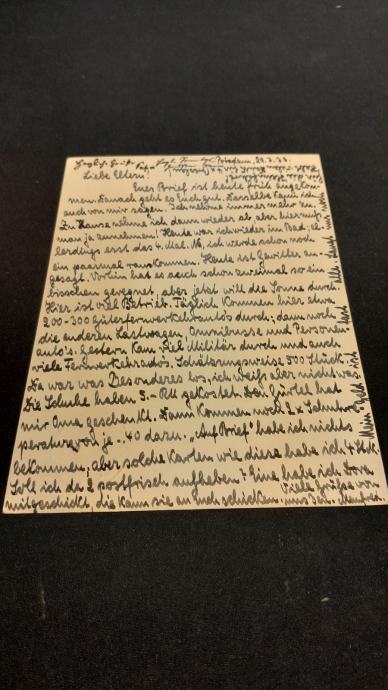 Potsdam, 20.7.38.
Liebe Eltern!
Euer Brief ist heute früh angekom-
men. Danach geht es Euch gut. Dasselbe kann ich
auch von mir sagen. Ich nehme immer mehr zu.
Zu Hause nehme ich dann wieder ab aber hier muß
man ja annehmen! Heute war ich wieder im Bad, al-
lerdings erst das 4. Mal. Na, ich werde schon noch
ein paarmal rankommen. Heute ist Gewitter an-
gesagt. Vorhin hat es auch schon zweimal so ein
bisschen geregnet, aber jetzt will die Sonne durch.
Hier ist viel Betrieb. Täglich kommen hier etwa
200-300 Güterfernverkehrsautos durch; dann noch
die anderen Lastwagen, Omnibusse und Personen-
auto's. Gestern kam viel Militär durch und auch
viele Fernverkehrsautos. Schätzungsweise 500 Stück.
Da war was Besonderes los, ich weiß aber nicht was.
Die Schuhe haben 3.- RM gekostet. Den Gürtel hat
mir Oma geschenkt. Dann kommen noch 2 x Schuhre-
peraturen je -.40 dazu. "Auf Brief" habe ich nichts
bekommen, aber solche Karten wie diese habe ich 4 Stck.
Soll ich da 2 postfrisch aufheben? Eine habe ich
mitgeschickt, die kann sie an Euch schicken.
Viele Grüße von
Manfred.